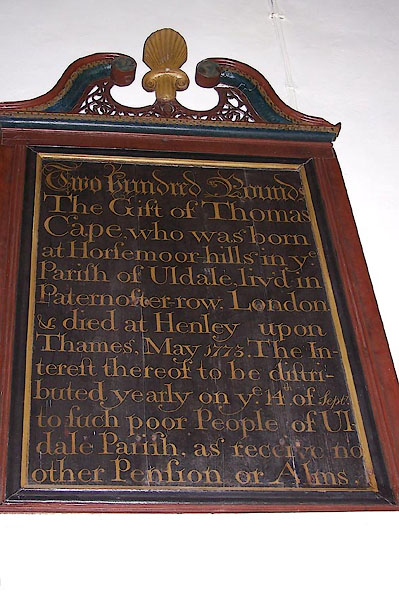 Two hundred Pounds
The Gift of Thomas
Cape, who was born
at Horſemoor-hills in yᵉ
Pariſh of Uldale, liv'd in
Paternoſter-row, London,
& died at Henley upon
Thames, May 1773. The In-
tereſt thereof to be diſtri-
buted yearly on yᵉ 14th of Septr.
to ſuch poor People of Ul-
dale Pariſh, as receive no
other Penſion or Alms.